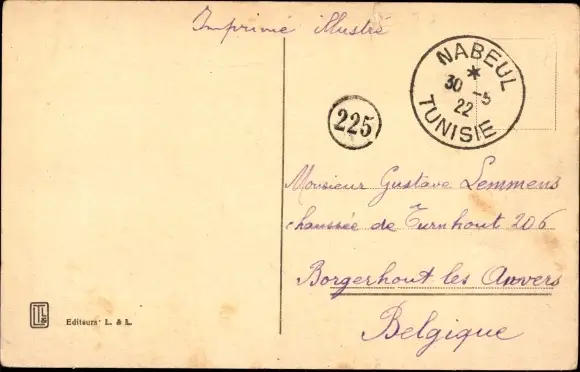 Imprimé illustré
NABEUL
30 -5
22
TUNISIE
225
Monsieur Gustave Lemmens
chaussée de Turnhout 206
Borgerhout les Anvers
Belgique
Editeurs L. & L.